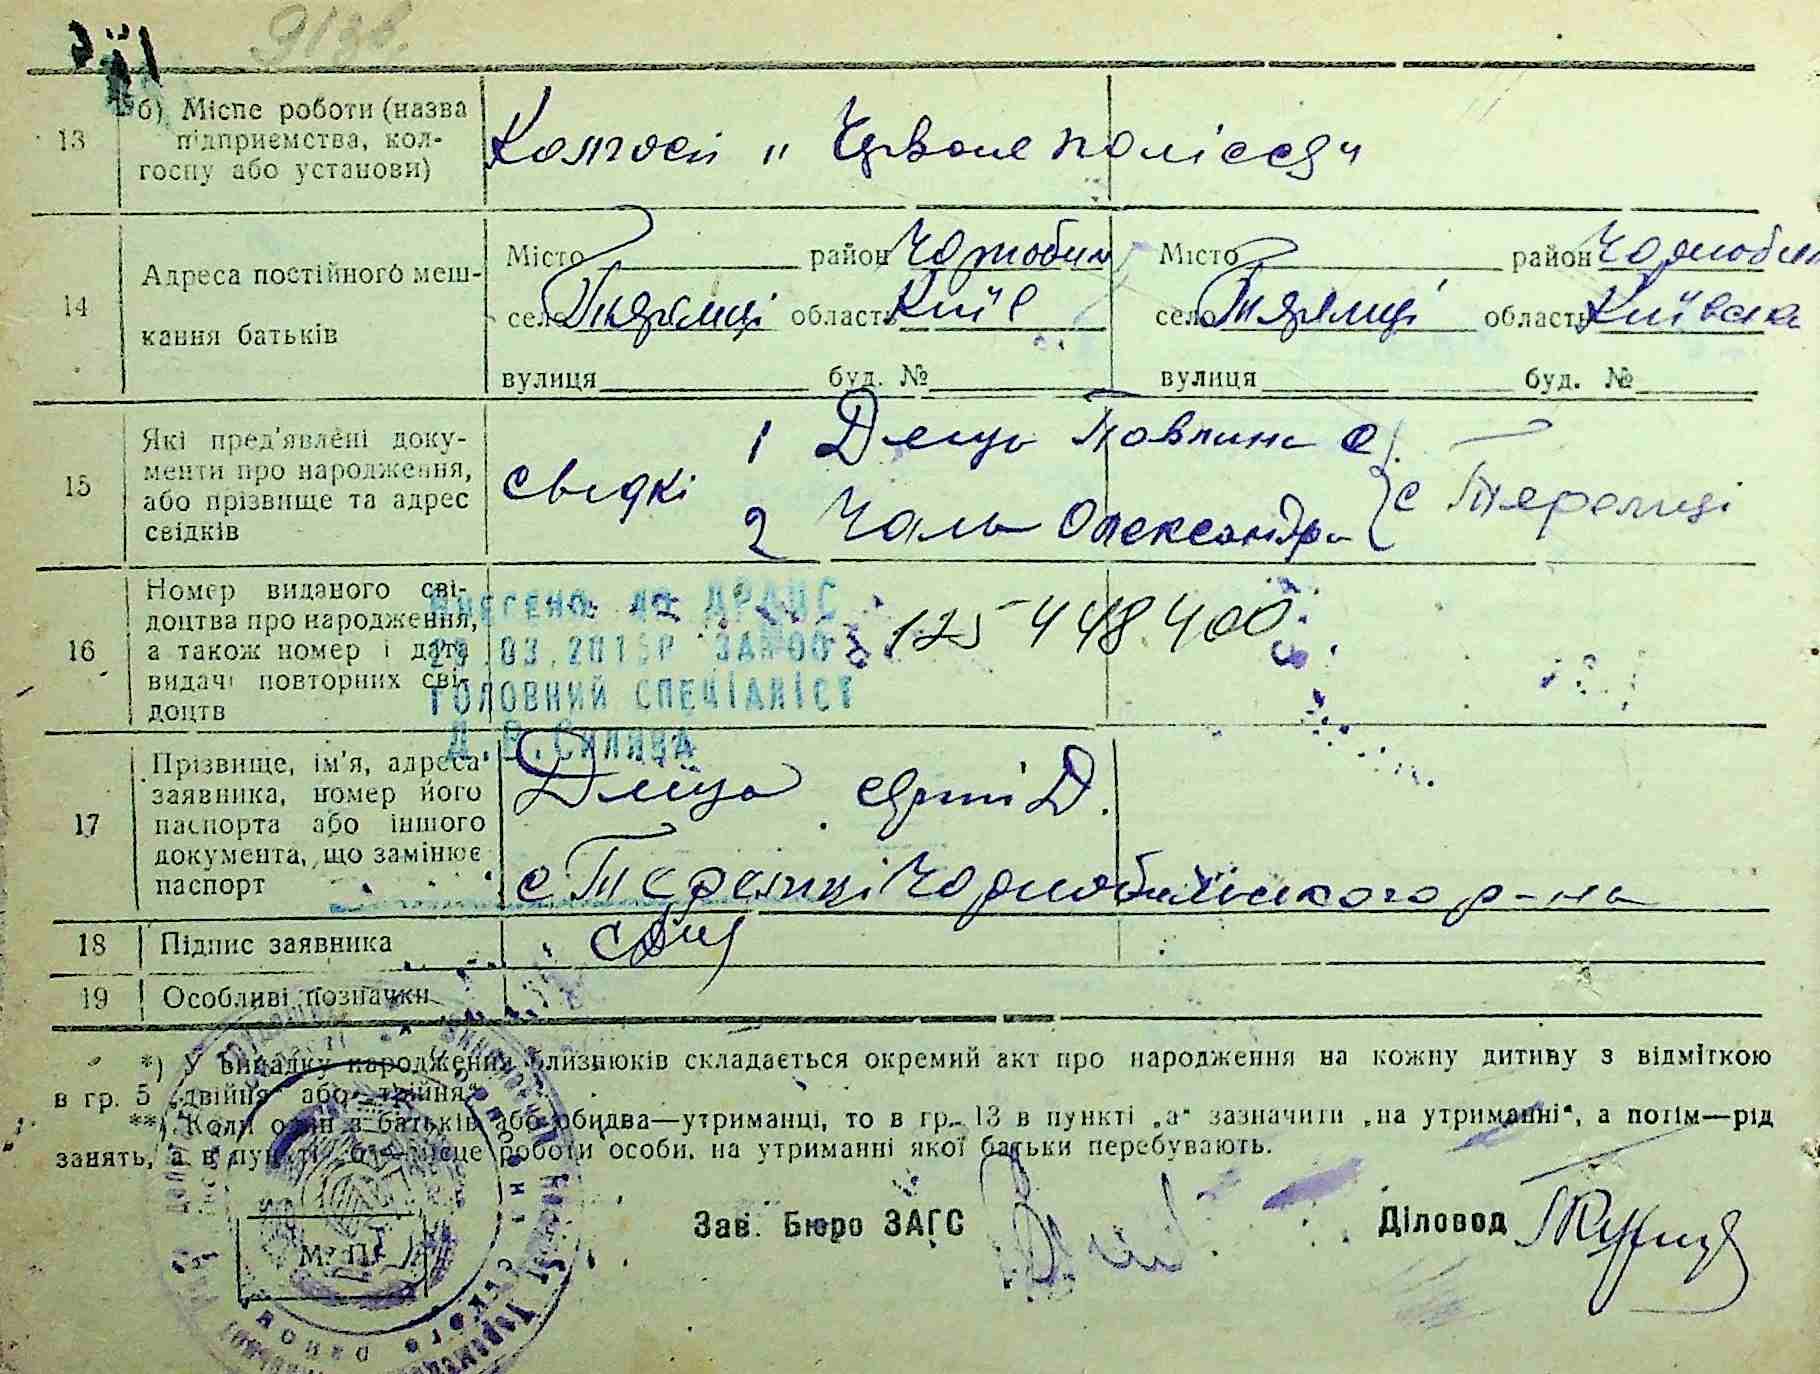 13
б) Місце роботи (назва
підприємства, кол-
госпу або установи)
Колгосп „Червоне полісся"
14
Адреса постійного меш-
кання батьків
Місто район Чорнобил
село Теремці область Київ
вулиця буд. №
Місто район Чорнобил
село Теремці область Київська
вулиця буд. №
15
Які пред'явлені доку-
менти про народження,
або прізвище та адрес
свідків
свідкі
1 Деща Павлина С.
2 Чаль Олександра
с Теремці
16
Номер виданого сві-
доцтва про народження,
а також номер і дата
видачі повторних сві-
доцтв
125 448 400
Внесено до ДРАЦС
ГОЛОВНИЙ СПЕЦІАЛІСТ
17
Прізвище, ім'я, адреса
заявника, номер його
паспорта або іншого
документа, що замінює
паспорт
Деща Сергій Д.
с Теремці Чорнобильського р-на
18
Підпис заявника
19
Особливі позначки
*) У випадку народження близнюків складається окремий акт про народження на кожну дитину з відміткою
в гр. 5 „двійня" або „трійня".
**) Коли один з батьків або обидва—утриманці, то в гр. 13 в пункті „а" зазначити „на утриманні", а потім—рід
занять, а в пункті „б"—місце роботи особи, на утриманні якої батьки перебувають.
М. П.
Зав. Бюро ЗАГС
Діловод